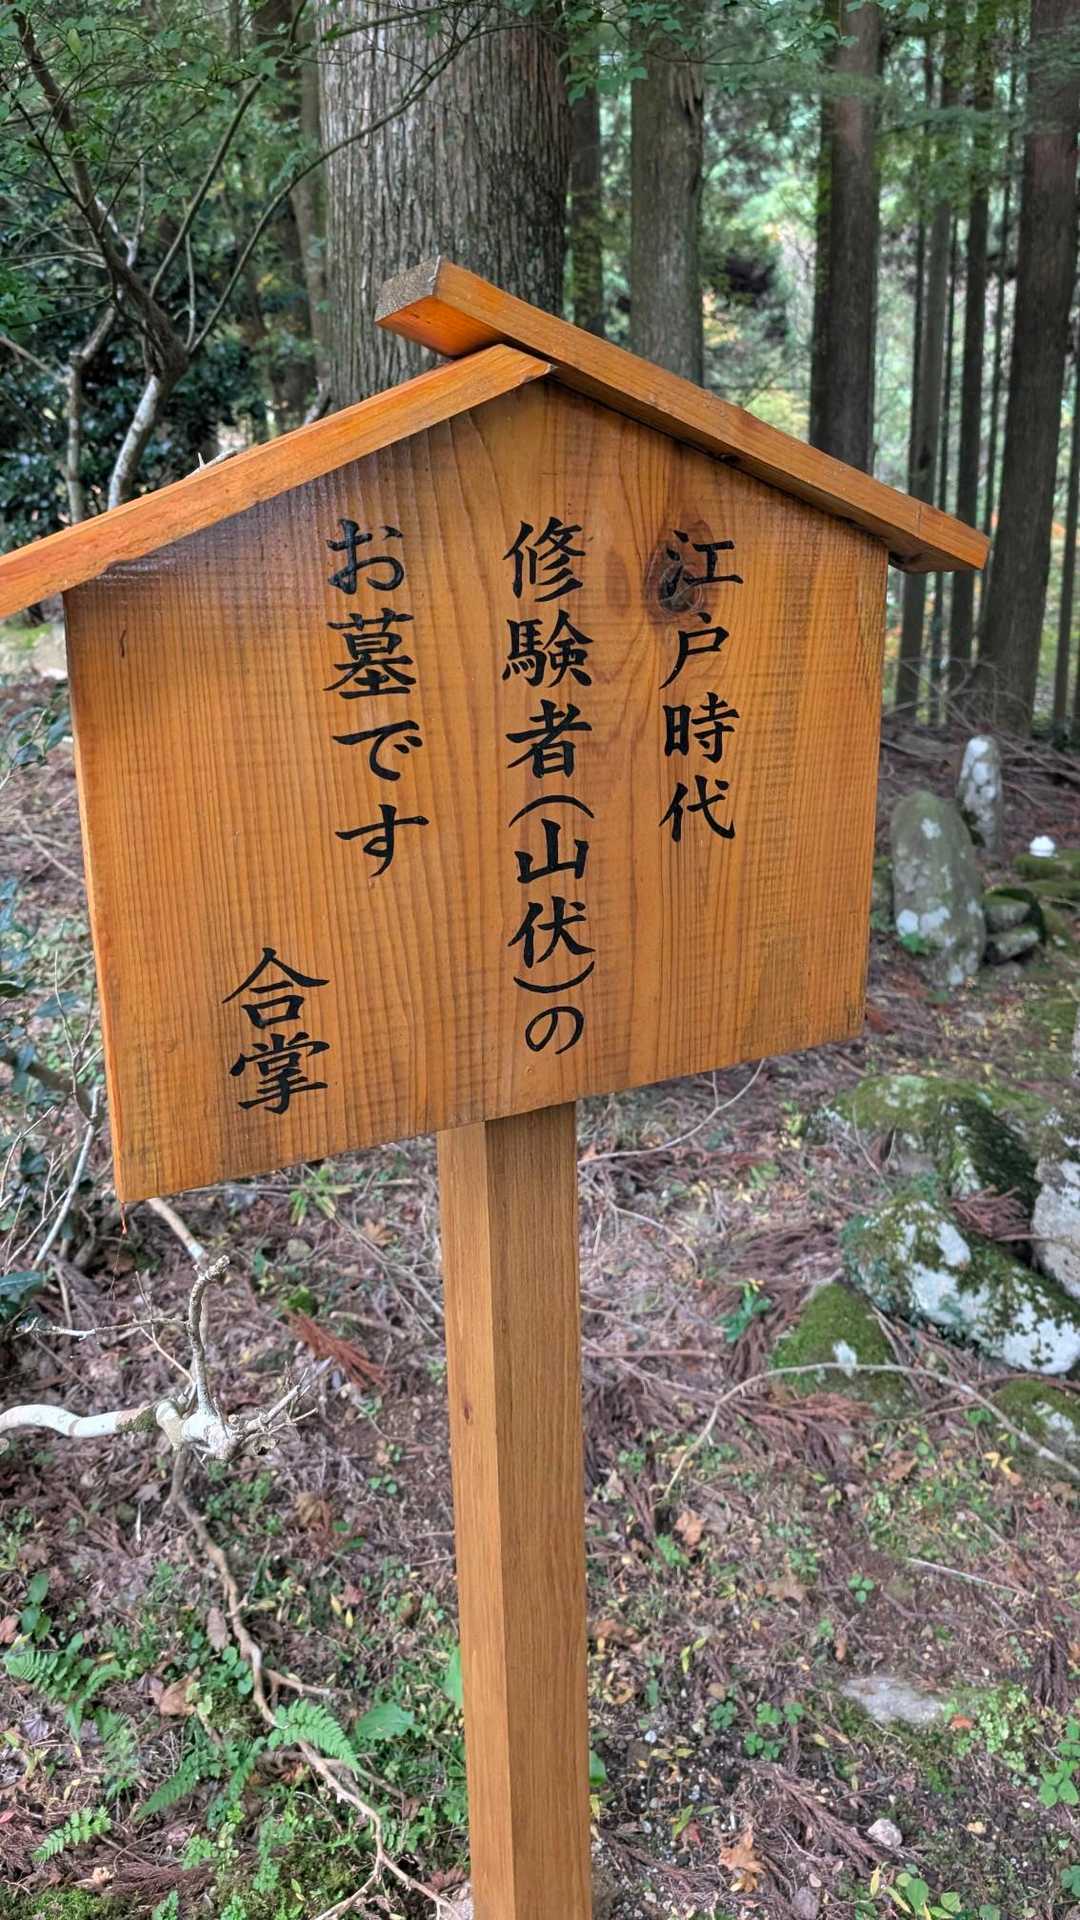 江戸時代
修験者(山伏)の
お墓です
合掌